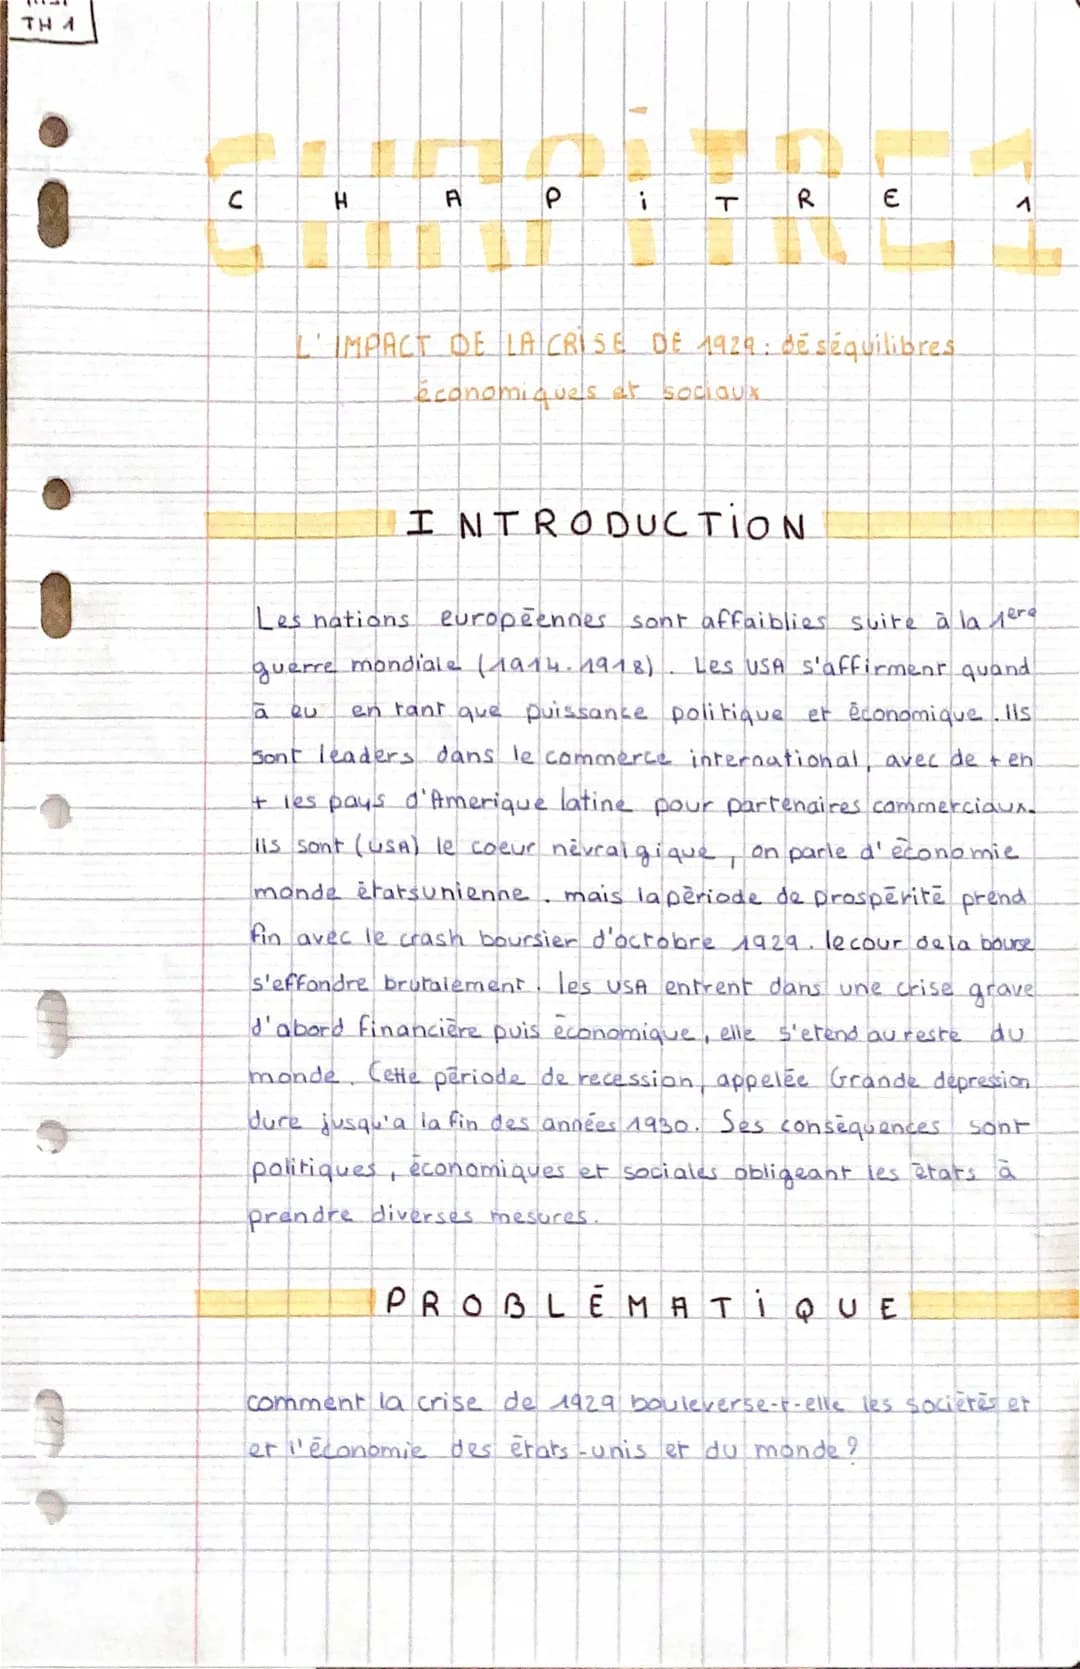 TH 1
CHAPiTRE 1
C H A P i T R E 1
L'IMPACT DE LA CRISE DE 1929 : déséquilibres
économiques et sociaux
INTRODUCTiON
Les nations européennes sont affaiblies suite à la 1ere
guerre mondiale (1914-1918). Les USA s'affirment quand
à eu en tant que puissance politique et économique. Ils
sont leaders dans le commerce international, avec de + en
+ les pays d'Amerique latine pour partenaires commerciaux.
Ils sont (USA) le coeur névralgique, on parle d'économie
monde étatsunienne. mais la période de prospérité prend
fin avec le crash boursier d'octobre 1929. le cour de la bourse
s'effondre brutalement. les USA entrent dans une crise grave
d'abord financière puis économique, elle s'etend au reste du
monde. Cette période de recession, appelée Grande dépression
dure jusqu'a la fin des années 1930. Ses conséquences sont
politiques, économiques et sociales obligeant les états à
prendre diverses mesures.
PROBLÉMATiQUE
comment la crise de 1929 bouleverse-t-elle les sociétés et
et l'économie des états-unis et du monde ?